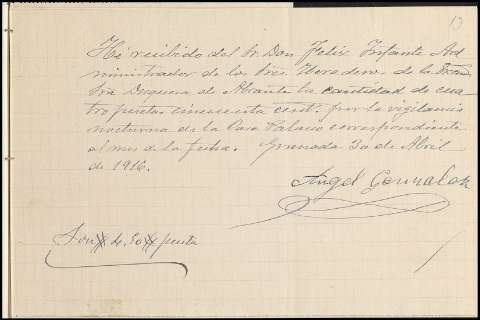 13
He recibido del Sr. Don Felix Infante Ad
ministrador de los Sres. Herederos de la Excma
Sra Duquesa de Abrante la cantidad de cua
tro pesetas cincuenta cent. por la vigilancia
nocturna de la Casa Palacio correspondiente
al mes de la fecha. Granada 30 de Abril
de 1916.
Angel Gonzalez
Son 4 de 50 peseta